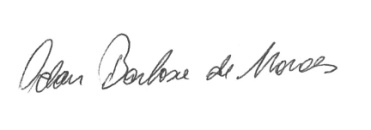 Adan Barbosa de Moraes